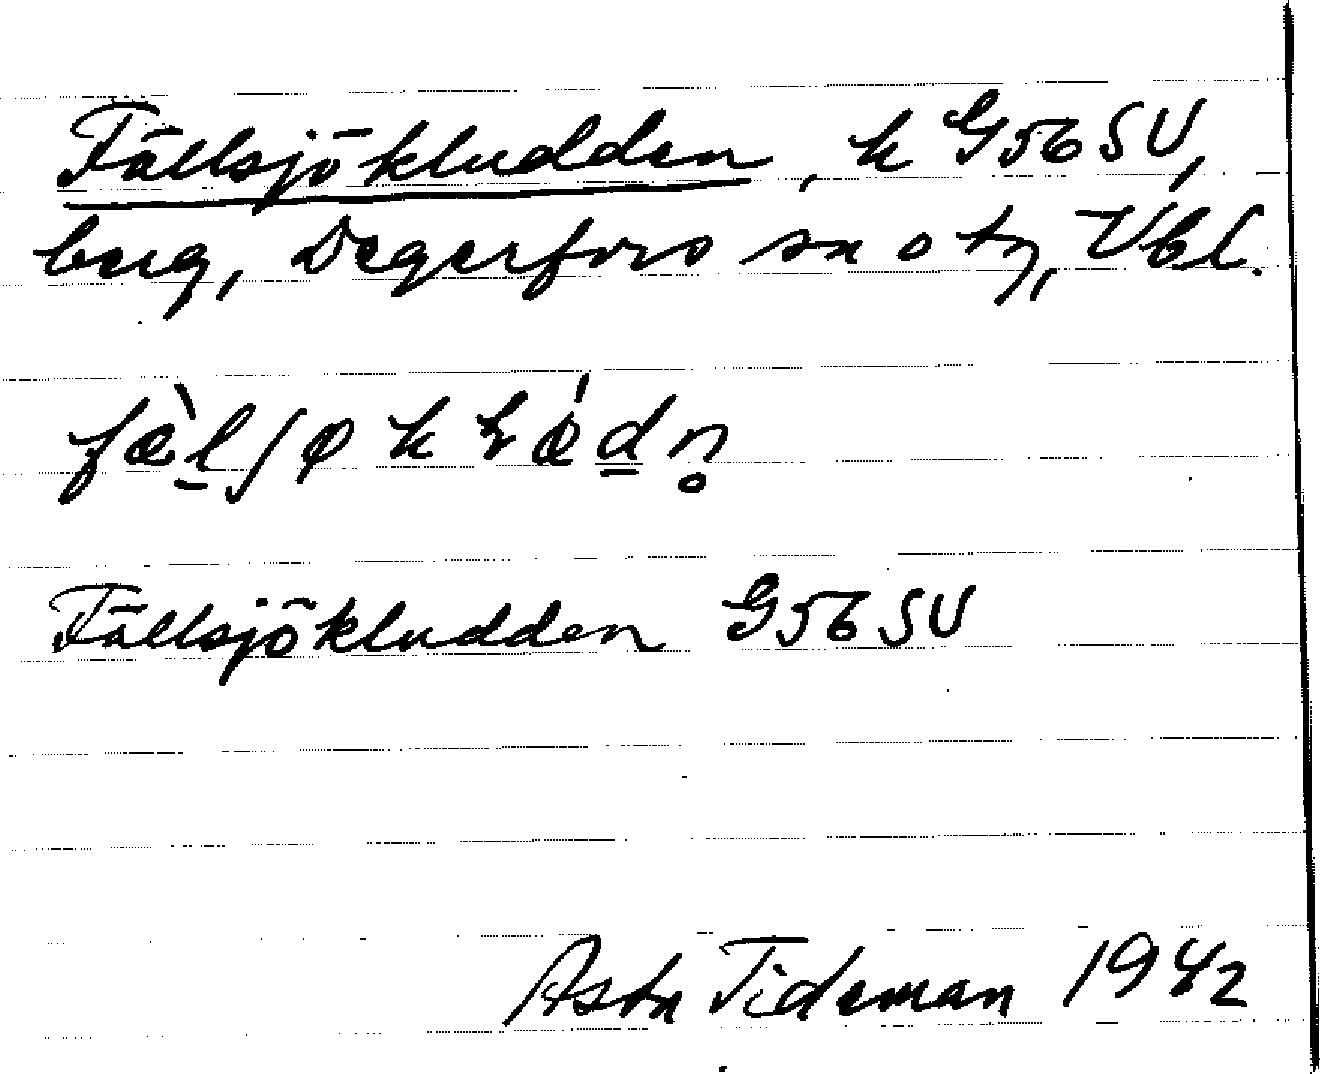 Fällsjökludden, k G56SV,
berg, Degerfors sn o tg, Vbl.
Fällsjökludden G56SV
Asta Tideman 1942